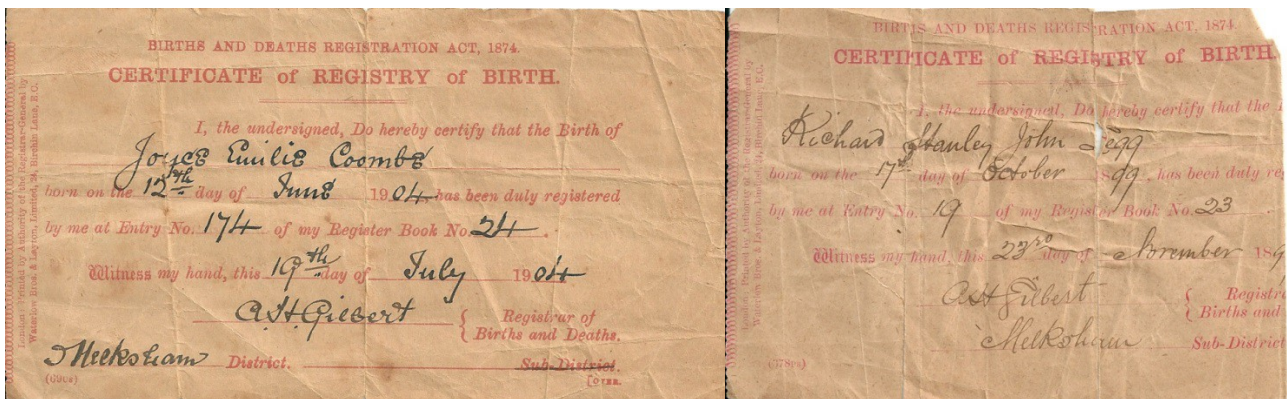 BIRTHS AND DEATHS REGISTRATION ACT, 1874.
CERTIFICATE of REGISTRY of BIRTH.
I, the undersigned, Do hereby certify that the Birth of
Joyce Emilie Coombe
born on the 12th day of June 1904 has been duly registered
by me at Entry No. 174 of my Register Book No. 24.
Witness my hand, this 19th day of July 1904
A.H. Gilbert { Registrar of
Births and Deaths.
Melksham District. Sub-District.
[OVER.
London: Printed by Authority of the Registrar-General by
Waterlow Bros. & Layton, Limited, 24, Birchin Lane, E.C.
BIRTHS AND DEATHS REGISTRATION ACT, 1874.
CERTIFICATE of REGISTRY of BIRTH.
I, the undersigned, Do hereby certify that the
Richard Stanley John
born on the 17th day of October 1899 has been duly
by me at Entry No. 19 of my Register Book No. 23
Witness my hand, this 23rd day of November 189
A.H. Gilbert { Registra
Births and
Melksham Sub-District